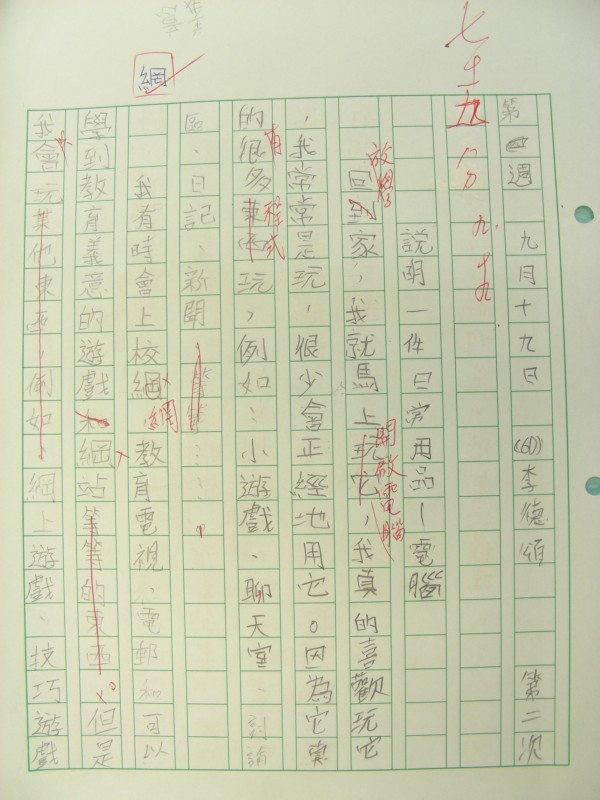 第週 九月十九日 (6D) 李德頌 第二次
說明一件日常用品—電腦
放學
回到家,我就馬上玩它,我真的喜歡玩它
開啟電腦
,我常常是玩,很少會正經地用它。因為它裏
的很多東西玩,例如:小遊戲、聊天室、討論
有
程式
區、日記、新聞等等……
我有時會上校網,教育電視,電郵和可以
網
網
學到教育義意的遊戲和網站等等的東西。但是
我會玩其他東西,例如,網上遊戲、技巧遊戲